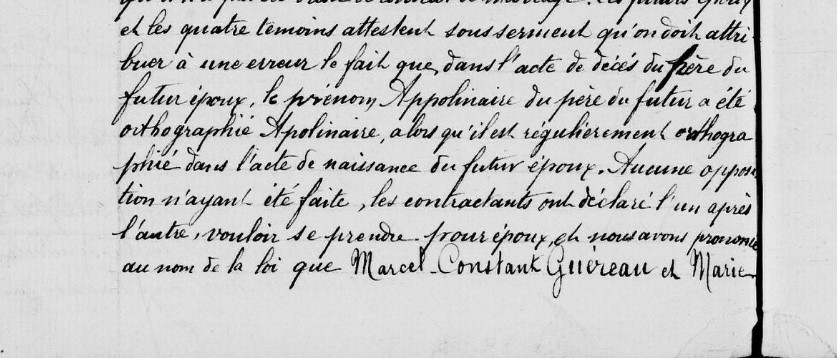 et les quatre témoins attestent sous serment qu'on doit attri-
buer à une erreur le fait que, dans l'acte de décès du père du
futur époux, le prénom Appolinaire du père du futur a été
orthographié Apolinaire, alors qu'il est régulièrement orthogra
phié dans l'acte de naissance du futur époux. Aucune opposi
tion n'ayant été faite, les contractants ont déclaré l'un après
l'autre, vouloir se prendre pour époux, et nous avons prononcé
au nom de la loi que Marcel Constant Guéreau et Marie